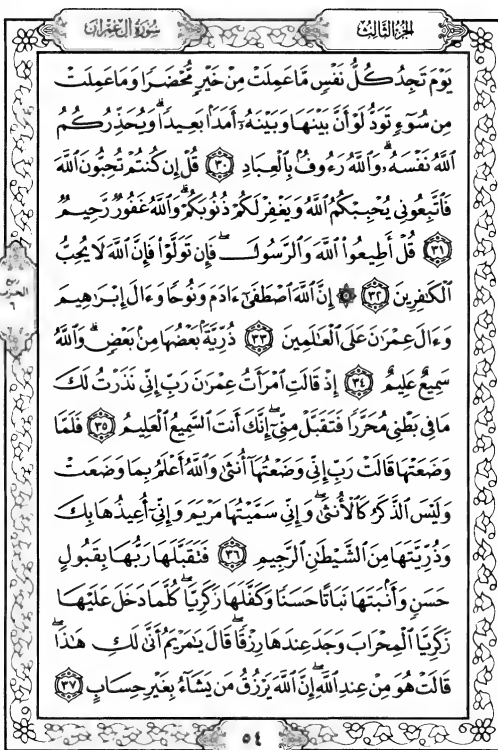 سُورَةُ آلِ عِمْرَان
الجزء الثالث
يَوْمَ تَجِدُ كُلُّ نَفْسٍ مَّا عَمِلَتْ مِنْ خَيْرٍ مُّحْضَرًا وَمَا عَمِلَتْ
مِن سُوٓءٍ تَوَدُّ لَوْ أَنَّ بَيْنَهَا وَبَيْنَهُۥٓ أَمَدًۢا بَعِيدًاۗ وَيُحَذِّرُكُمُ
ٱللَّهُ نَفْسَهُۥۗ وَٱللَّهُ رَءُوفُۢ بِٱلْعِبَادِ ٣٠ قُلْ إِن كُنتُمْ تُحِبُّونَ ٱللَّهَ
فَٱتَّبِعُونِي يُحْبِبْكُمُ ٱللَّهُ وَيَغْفِرْ لَكُمْ ذُنُوبَكُمْۗ وَٱللَّهُ غَفُورٌ رَّحِيمٌ
٣١ قُلْ أَطِيعُوا۟ ٱللَّهَ وَٱلرَّسُولَۖ فَإِن تَوَلَّوْا۟ فَإِنَّ ٱللَّهَ لَا يُحِبُّ
ٱلْكَٰفِرِينَ ٣٢ ۞ إِنَّ ٱللَّهَ ٱصْطَفَىٰٓ ءَادَمَ وَنُوحًا وَءَالَ إِبْرَٰهِيمَ
وَءَالَ عِمْرَٰنَ عَلَى ٱلْعَٰلَمِينَ ٣٣ ذُرِّيَّةَۢ بَعْضُهَا مِنۢ بَعْضٍۗ وَٱللَّهُ
سَمِيعٌ عَلِيمٌ ٣٤ إِذْ قَالَتِ ٱمْرَأَتُ عِمْرَٰنَ رَبِّ إِنِّي نَذَرْتُ لَكَ
مَا فِي بَطْنِي مُحَرَّرًا فَتَقَبَّلْ مِنِّيٓۖ إِنَّكَ أَنتَ ٱلسَّمِيعُ ٱلْعَلِيمُ ٣٥ فَلَمَّا
وَضَعَتْهَا قَالَتْ رَبِّ إِنِّي وَضَعْتُهَآ أُنثَىٰ وَٱللَّهُ أَعْلَمُ بِمَا وَضَعَتْ
وَلَيْسَ ٱلذَّكَرُ كَٱلْأُنثَىٰۖ وَإِنِّي سَمَّيْتُهَا مَرْيَمَ وَإِنِّيٓ أُعِيذُهَا بِكَ
وَذُرِّيَّتَهَا مِنَ ٱلشَّيْطَٰنِ ٱلرَّجِيمِ ٣٦ فَتَقَبَّلَهَا رَبُّهَا بِقَبُولٍ
حَسَنٍ وَأَنۢبَتَهَا نَبَاتًا حَسَنًا وَكَفَّلَهَا زَكَرِيَّاۖ كُلَّمَا دَخَلَ عَلَيْهَا
زَكَرِيَّا ٱلْمِحْرَابَ وَجَدَ عِندَهَا رِزْقًاۖ قَالَ يَٰمَرْيَمُ أَنَّىٰ لَكِ هَٰذَاۖ
قَالَتْ هُوَ مِنْ عِندِ ٱللَّهِۖ إِنَّ ٱللَّهَ يَرْزُقُ مَن يَشَآءُ بِغَيْرِ حِسَابٍ ٣٧
٥٤